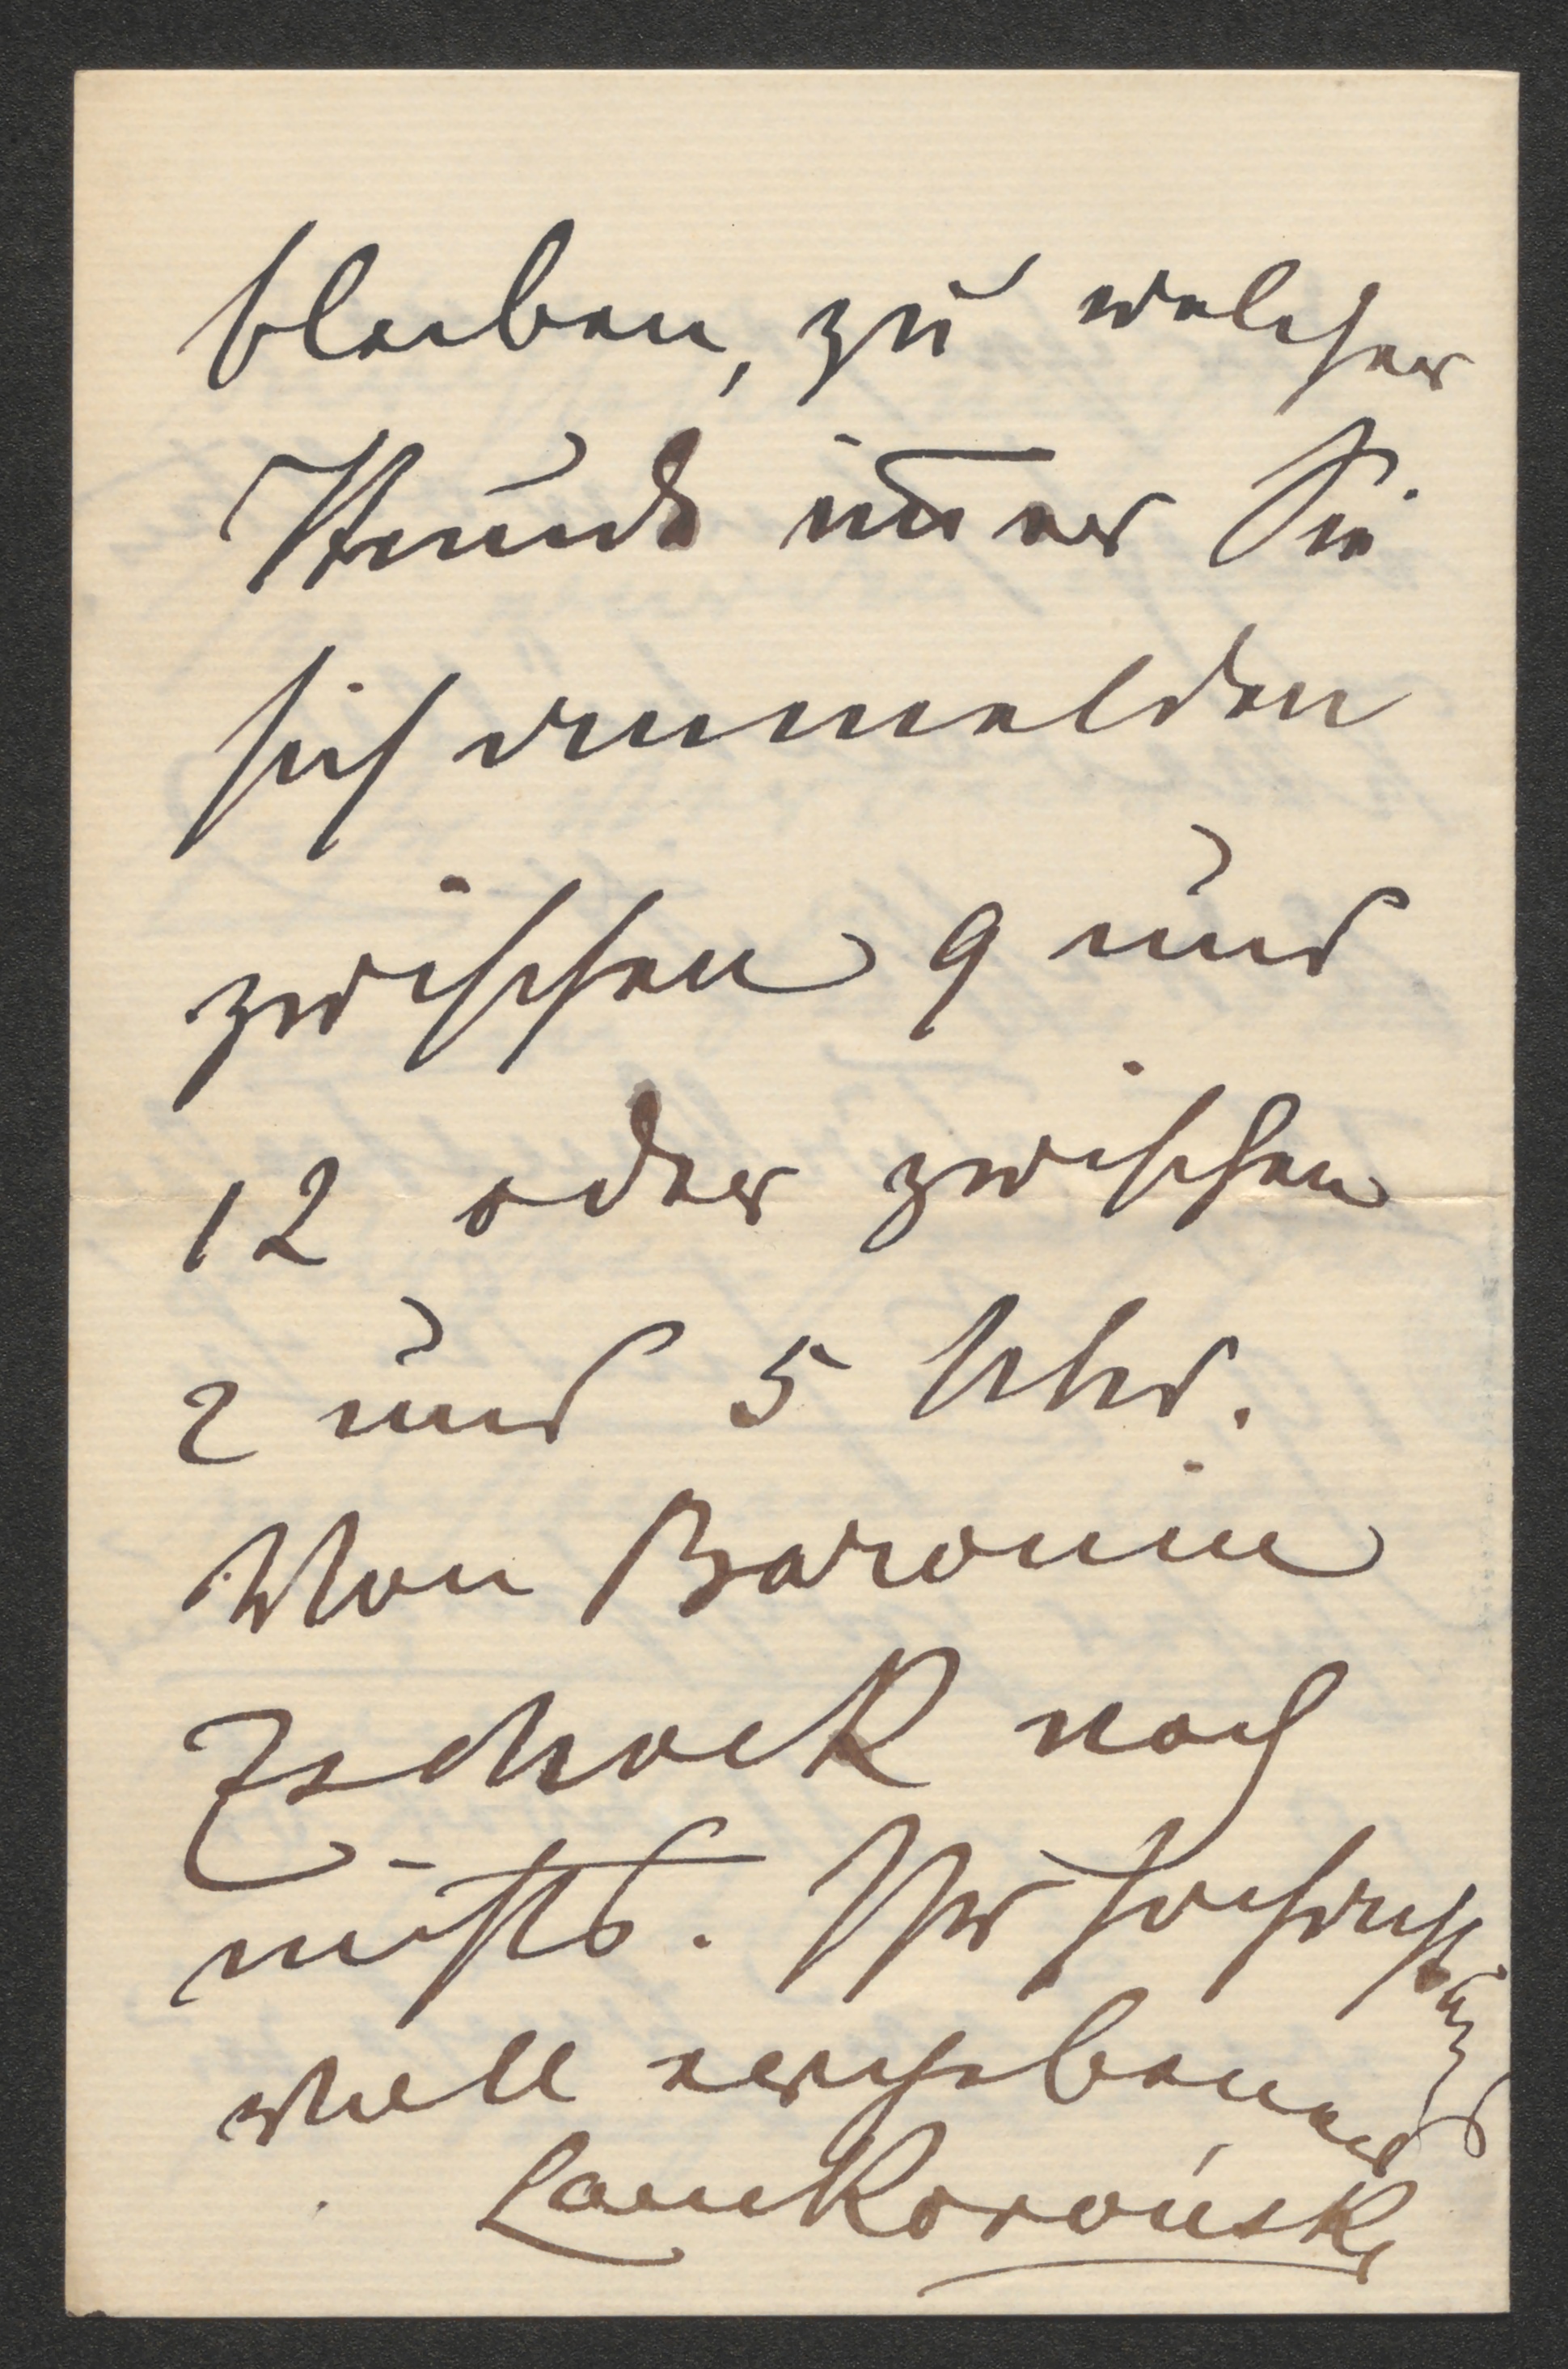 bleiben, zu welcher
Stunde im̅er Sie
sich anmelden
zwischen 9 und
12 oder zwischen
2 und 5 Uhr.
Von Baronin
Zschock noch
nichts. Ihr hochachtungs
voll ergebener
Lanckoroński